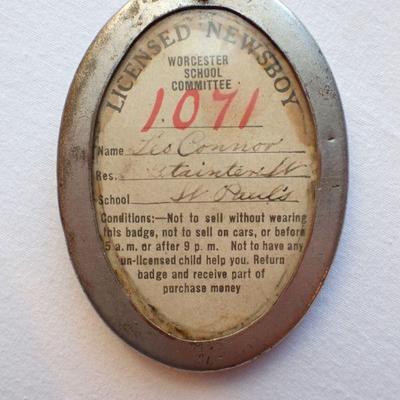 LICENSED NEWSBOY
WORCESTER
SCHOOL
COMMITTEE
1071
Name Leo Connor
Res. Stainter St
School St Paul's
Conditions:—Not to sell without wearing
this badge, not to sell on cars, or before
5 a. m. or after 9 p. m. Not to have any
un-licensed child help you. Return
badge and receive part of
purchase money